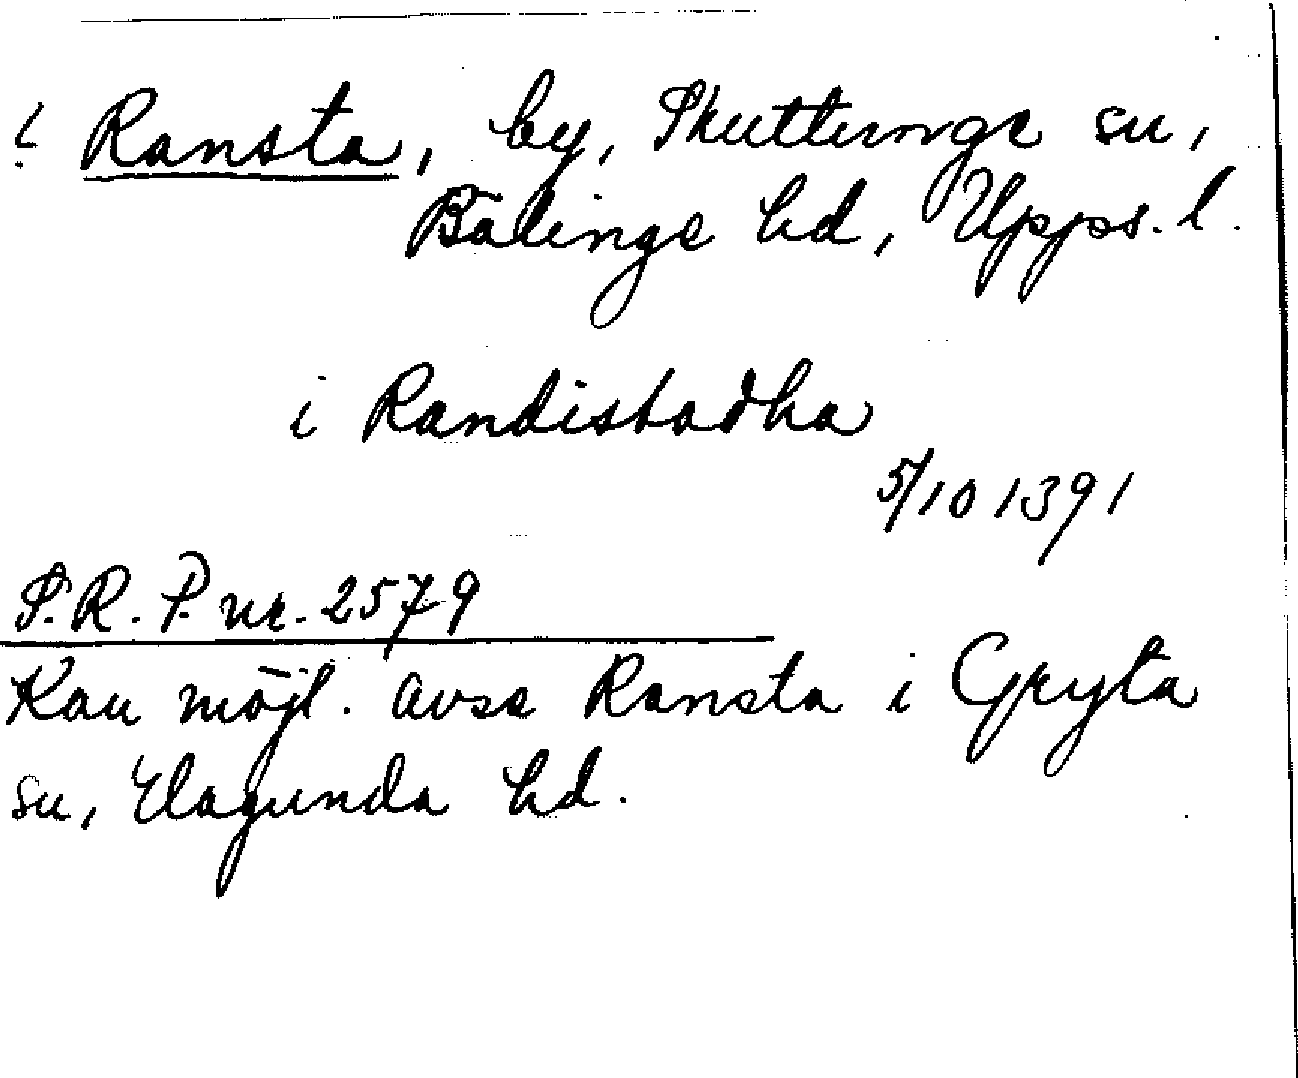 ? Ransta, by, Skuttunge sn,
Bälinge hd, Upps. l.
i Randistadha
5/10 1391
S.R.P. nr. 2579
Kan möjl. avse Ransta i Gryta
sn, Hagunda hd.